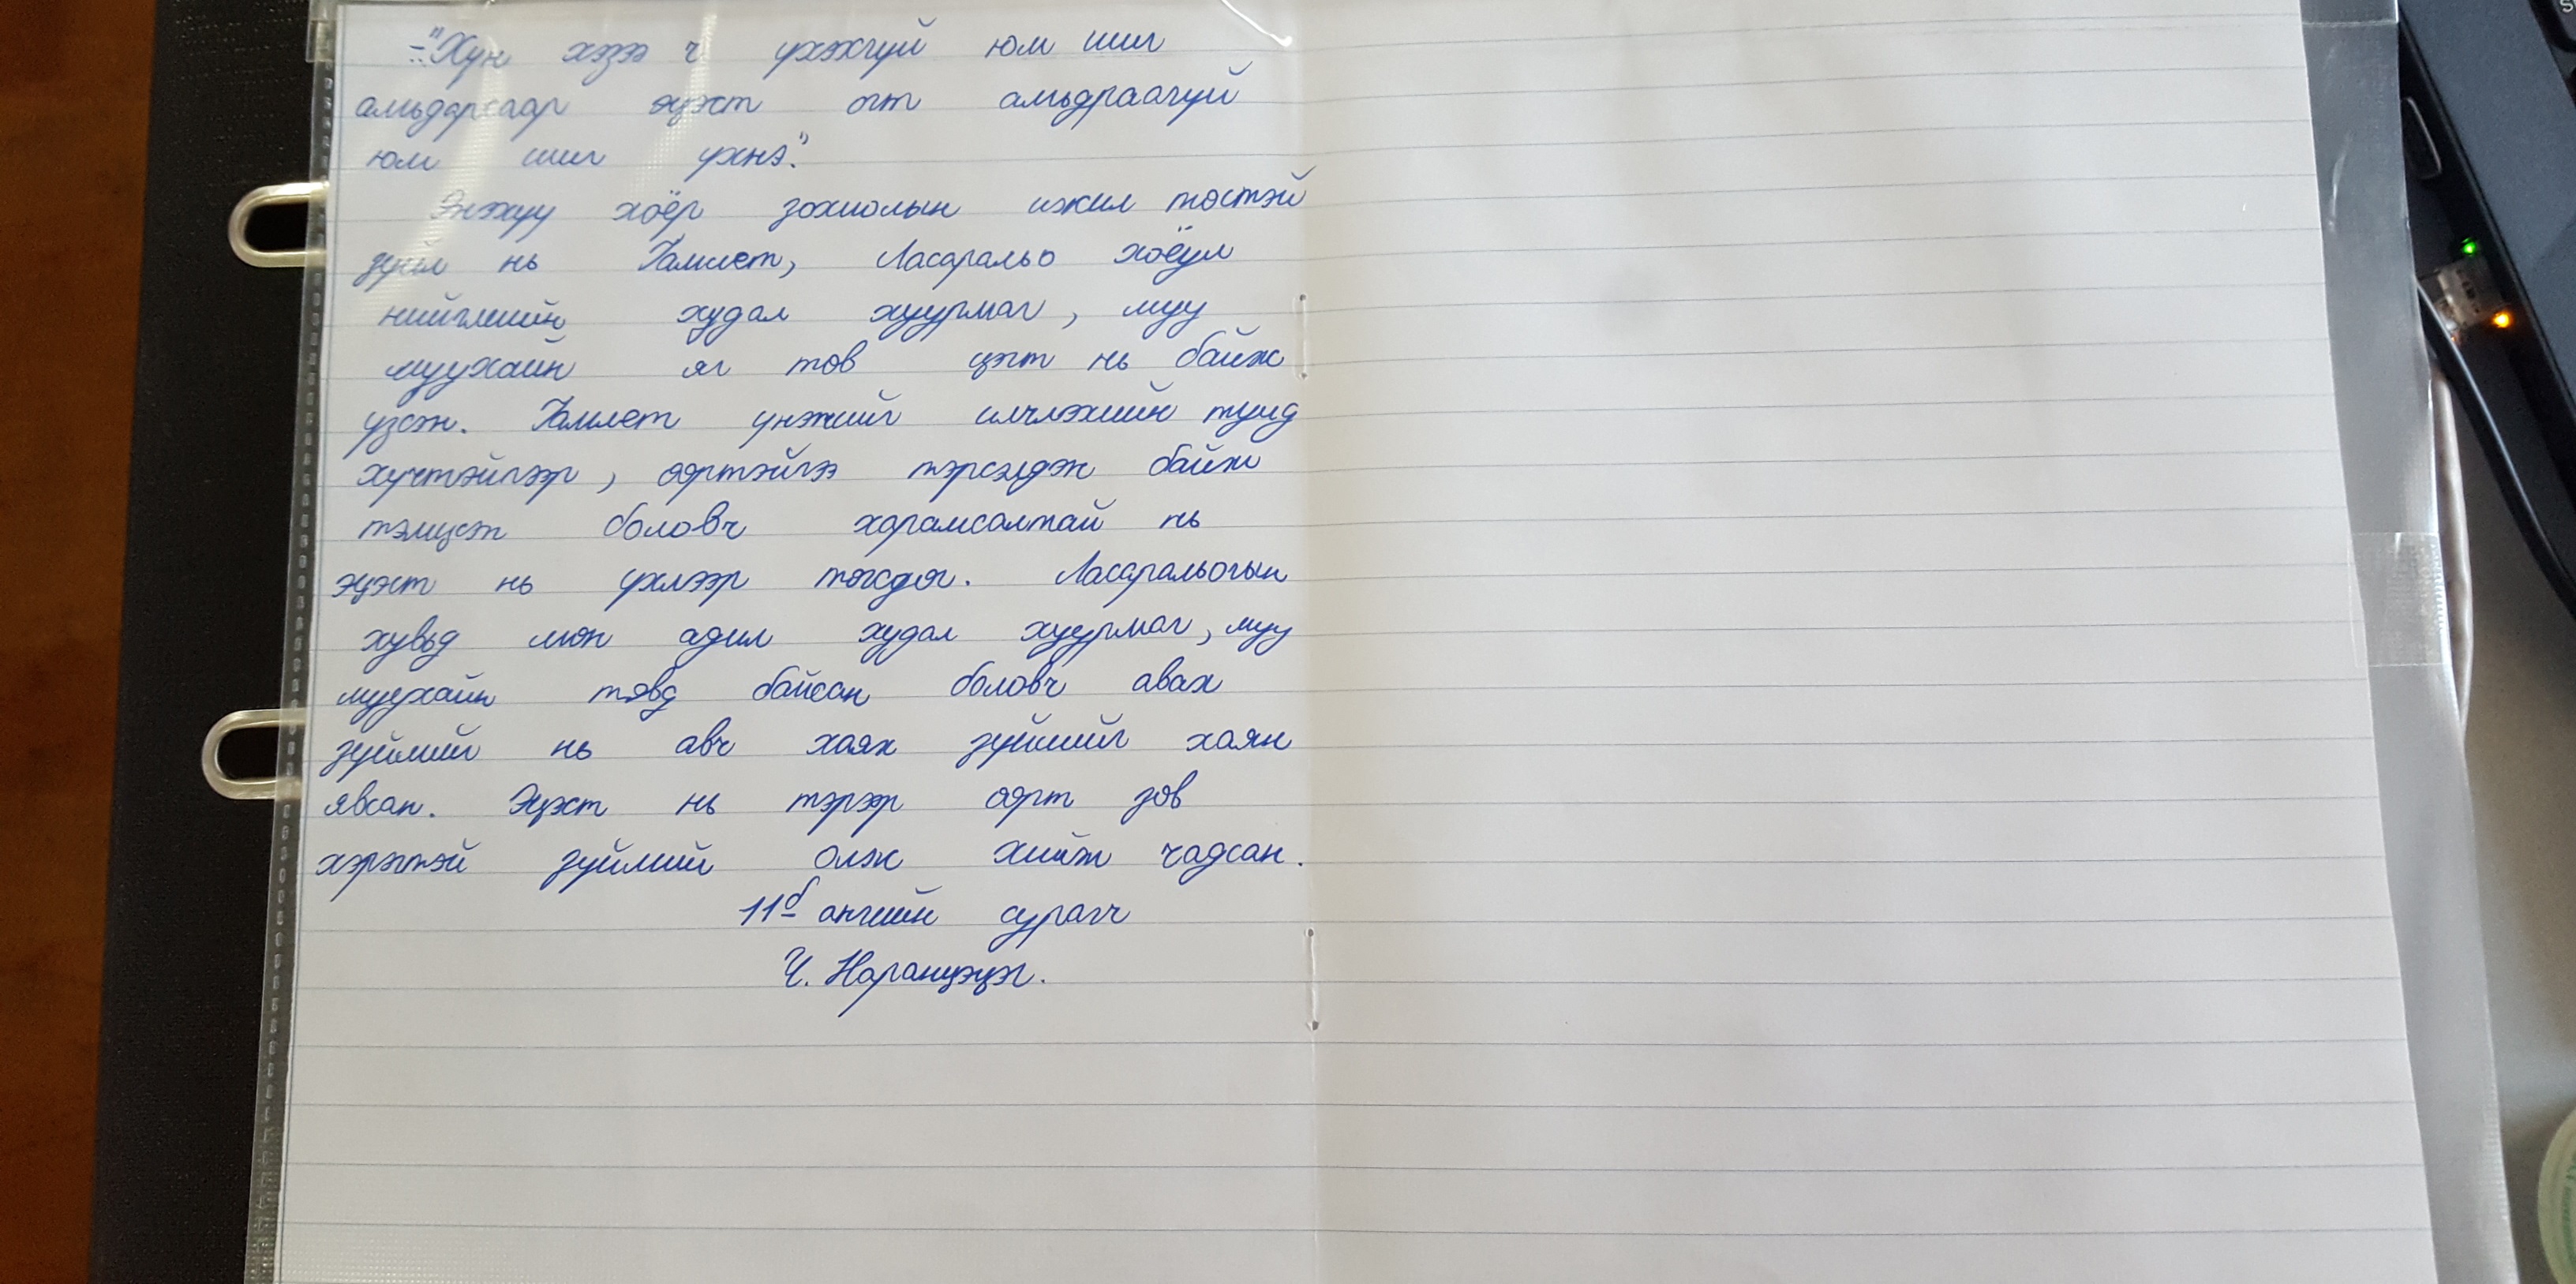 -: "Хүн хэзээ ч үхэхгүй юм шиг
амьдарсаар эцэст огт амьдраагүй
юм шиг үхнэ".
Энэхүү хоёр зохиолын ижил төстэй
зүйл нь Гамлет, Ласаральо хоёул
нийгмийн худал хуурмаг, муу
муухайн яг төв цэгт нь байж
үзсэн. Гамлет үнэнийг илчлэхийн тулд
хүчтэйгээр, өөртэйгөө тэрсэлдэж байж
тэмцсэн боловч харамсалтай нь
эцэст нь үхлээр төгсдөг. Ласаральогын
хувьд мөн адил худал хуурмаг, муу
муухайн төвд байсан боловч авах
зүйлийг нь авч хаях зүйлийг хаян
явсан. Эцэст нь тэрээр өөрт зөв
хэрэгтэй зүйлийг олж хийж чадсан.
11б ангийн сурагч
Ч. Наранцэцэг.